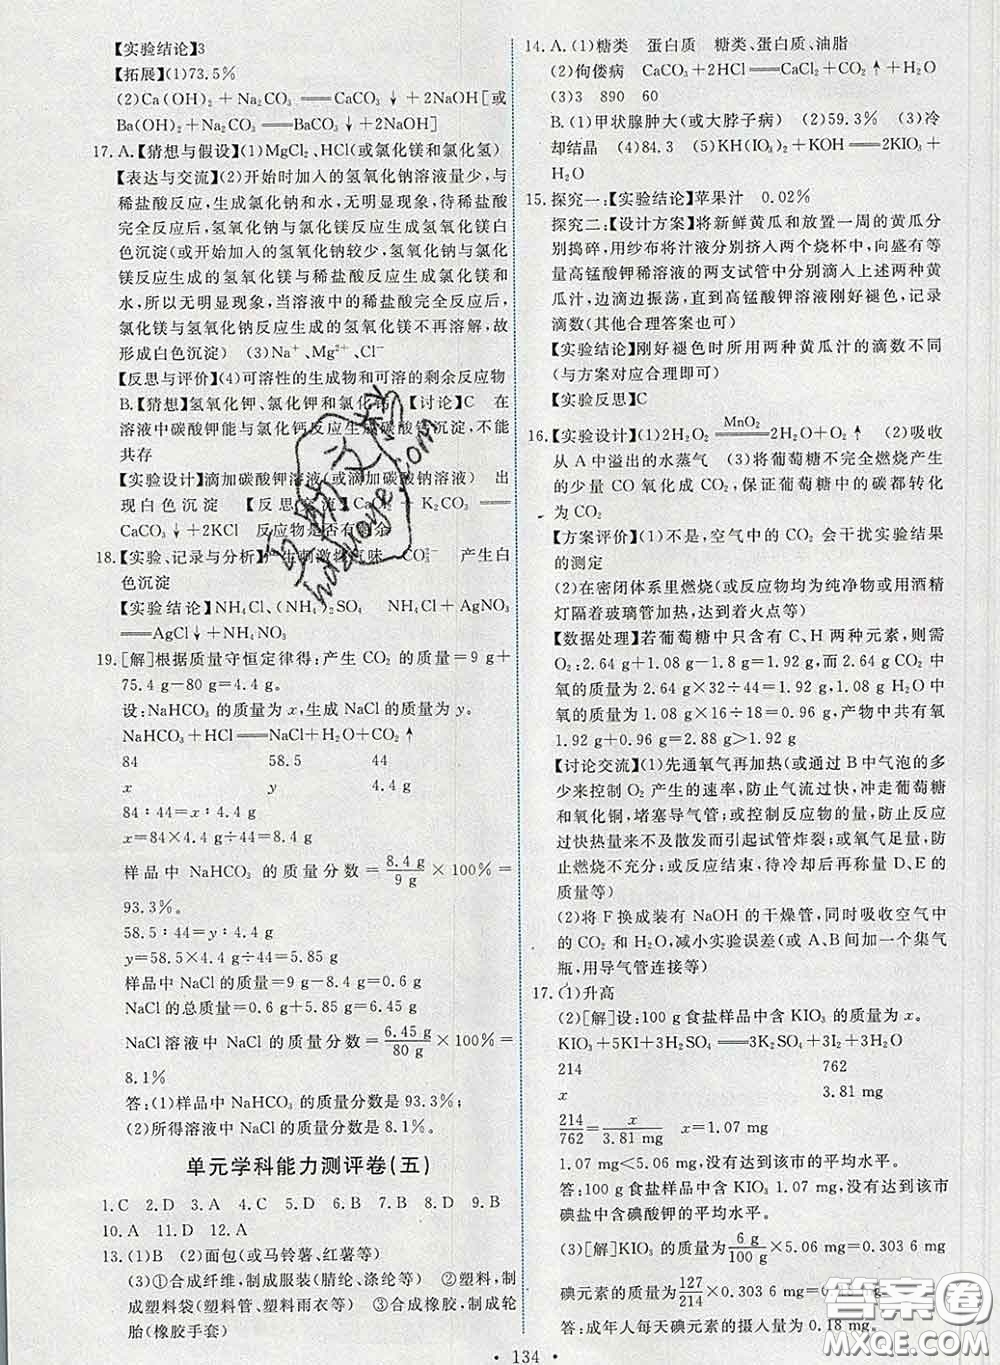 【实验结论】3
【拓展】(1)73.5%
(2)Ca(OH)₂+Na₂CO₃══CaCO₃↓+2NaOH[或
Ba(OH)₂+Na₂CO₃══BaCO₃↓+2NaOH]
17.A.【猜想与假设】(1)MgCl₂、HCl(或氯化镁和氯化氢)
【表达与交流】(2)开始时加入的氢氧化钠溶液量少,与
稀盐酸反应,生成氯化钠和水,无明显现象,稀盐酸完全
反应后,氢氧化钠与氯化镁反应生成氢氧化镁
白色沉淀(或开始加入的氢氧化钠较少,氢氧化钠与氯化
镁反应生成的氢氧化镁与稀盐酸反应生成氯化镁和
水,所以无明显现象,当溶液中的稀盐酸完全反应后,
氯化镁与氢氧化钠反应生成的氢氧化镁不再溶解,故
形成白色沉淀) (3)Na⁺、Mg²⁺、Cl⁻
【反思与评价】(4)可溶性的生成物和可溶的剩余反应物
B.【猜想】氢氧化钾、氯化钾和氯化钙 【讨论】C 在
溶液中碳酸钾能与氯化钙反应生成碳酸钙沉淀,不能
共存
【实验设计】滴加碳酸钾溶液(或滴加碳酸钠溶液) 出
现白色沉淀 【反思交流】CaCl₂+K₂CO₃══
CaCO₃↓+2KCl 反应物是否有剩余
18.【实验、记录与分析】产生刺激性气味 CO₃²⁻ 产生白
色沉淀
【实验结论】NH₄Cl、(NH₄)₂SO₄ NH₄Cl+AgNO₃
══AgCl↓+NH₄NO₃
19.[解]根据质量守恒定律得:产生 CO₂ 的质量=9 g+
75.4 g−80 g=4.4 g。
设:NaHCO₃ 的质量为 x,生成 NaCl 的质量为 y。
NaHCO₃+HCl══NaCl+H₂O+CO₂↑
84 58.5 44
x y 4.4 g
84∶44=x∶4.4 g
x=84×4.4 g÷44=8.4 g
样品中 NaHCO₃ 的质量分数=8.4 g/9 g×100%=
93.3%。
58.5∶44=y∶4.4 g
y=58.5×4.4 g÷44=5.85 g
样品中 NaCl 的质量=9 g−8.4 g=0.6 g
NaCl 的总质量=0.6 g+5.85 g=6.45 g
NaCl 溶液中 NaCl 的质量分数=6.45 g/80 g×100%=
8.1%
答:(1)样品中 NaHCO₃ 的质量分数是 93.3%;
(2)所得溶液中 NaCl 的质量分数是 8.1%。
单元学科能力测评卷(五)
1.C 2.D 3.A 4.C 5.D 6.B 7.D 8.D 9.B
10.A 11.D 12.A
13.(1)B (2)面包(或马铃薯、红薯等)
(3)①合成纤维,制成服装(腈纶、涤纶等) ②塑料,制
成塑料袋(塑料管、塑料雨衣等) ③合成橡胶,制成轮
胎(橡胶手套)
14.A.(1)糖类 蛋白质 糖类、蛋白质、油脂
(2)佝偻病 CaCO₃+2HCl══CaCl₂+CO₂↑+H₂O
(3)3 890 60
B.(1)甲状腺肿大(或大脖子病) (2)59.3% (3)冷
却结晶 (4)84.3 (5)KH(IO₃)₂+KOH══2KIO₃+
H₂O
15.探究一:【实验结论】苹果汁 0.02%
探究二:【设计方案】将新鲜黄瓜和放置一周的黄瓜分
别捣碎,用纱布将汁液分别挤入两个烧杯中,向盛有等
量高锰酸钾稀溶液的两支试管中分别滴入上述两种黄
瓜汁,边滴边振荡,直到高锰酸钾溶液刚好褪色,记录
滴数(其他合理答案也可)
【实验结论】刚好褪色时所用两种黄瓜汁的滴数不同
(与方案对应合理即可)
【实验反思】C
16.【实验设计】(1)2H₂O₂ ══(MnO₂) 2H₂O+O₂↑ (2)吸收
从 A 中溢出的水蒸气 (3)将葡萄糖不完全燃烧产生
的少量 CO 氧化成 CO₂,保证葡萄糖中的碳都转化
为 CO₂
【方案评价】(1)不是,空气中的 CO₂ 会干扰实验结果
的测定
(2)在密闭体系里燃烧(或反应物均为纯净物或用酒精
灯隔着玻璃管加热,达到着火点等)
【数据处理】若葡萄糖中只含有 C、H 两种元素,则需
O₂:2.64 g+1.08 g−1.80 g=1.92 g。2.64 g CO₂ 中
氧的质量为 2.64 g×32÷44=1.92 g,1.08 g H₂O 中
氧的质量为 1.08 g×16÷18=0.96 g,产物中共有氧
1.92 g+0.96 g=2.88 g>1.92 g
【讨论交流】(1)先通氧气再加热(或通过 B 中气泡的多
少来控制 O₂ 产生的速度,防止气流过快,冲走葡萄糖
和氧化铜,堵塞导气管;或控制反应物的量,防止反应
过快热量来不及散发而引起试管炸裂;或氧气足量,防
止燃烧不充分;或反应结束,待冷却后再称量 D、E 的
质量等)
(2)将 F 换成装有 NaOH 的干燥管,同时吸收空气中
的 CO₂ 和 H₂O,减小实验误差(或 A、B 间加一个集气
瓶,用导气管连接等)
17.(1)升高
(2)[解]设:100 g 食盐样品中含 KIO₃ 的质量为 x。
KIO₃+5KI+3H₂SO₄══3K₂SO₄+3I₂+3H₂O
214 762
x 3.81 mg
214/762=x/3.81 mg x=1.07 mg
1.07 mg<5.06 mg 没有达到该市的平均水平。
答:100 g 食盐样品中含 KIO₃ 1.07 mg,没有达到该市
碘盐中含碘酸钾的平均水平。
(3)[解]KIO₃ 的质量为 6 g/100 g×5.06 mg=0.303 6 mg
碘元素的质量为 127/214×0.303 6 mg=0.18 mg
答:成年人每天碘元素的摄入量为 0.18 mg。
134
答案圈
MXQE.COM